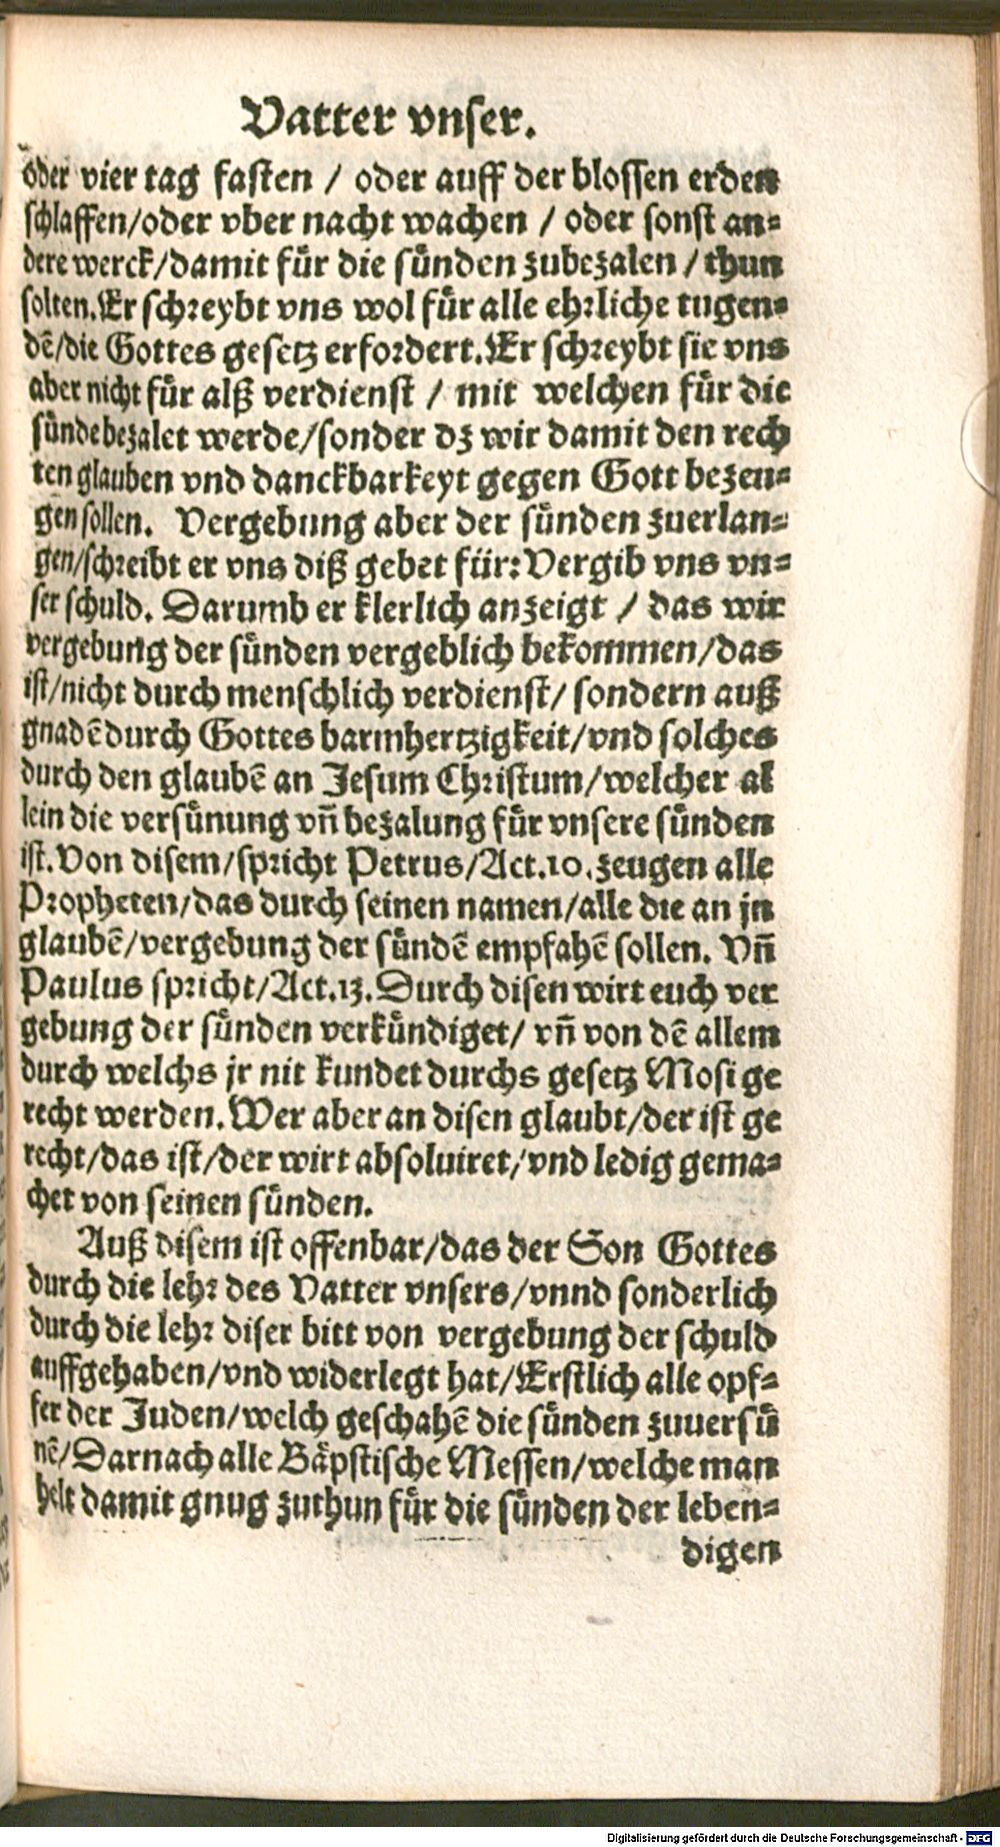 Vatter vnser.
oder vier tag fasten / oder auff der blossen erden
schlaffen/oder vber nacht wachen / oder sonst an=
dere werck/damit fuͤr die suͤnden zubezalen / thun
solten. Er schreybt vns wol fuͤr alle ehrliche tugen=
dē/die Gottes gesetz erfordert. Er schreybt sie vns
aber nicht fuͤr alß verdienst / mit welchen fuͤr die
suͤnde bezalet werde/sonder dz wir damit den rech
ten glauben vnd danckbarkeyt gegen Gott bezeu=
gen sollen. Vergebung aber der suͤnden zuerlan=
gen/schreibt er vns diß gebet fuͤr: Vergib vns vn=
ser schuld. Darumb er klerlich anzeigt / das wir
vergebung der suͤnden vergeblich bekommen/das
ist/nicht durch menschlich verdienst/ sondern auß
gnadē durch Gottes barmhertzigkeit/vnd solches
durch den glaubē an Jesum Christum/welcher al
lein die versuͤnung vñ bezalung fuͤr vnsere suͤnden
ist. Von disem/spricht Petrus/Act.10. zeugen alle
Propheten/das durch seinen namen/alle die an jn
glaubē/vergebung der suͤndē empfahē sollen. Vñ
Paulus spricht/Act.13. Durch disen wirt euch ver
gebung der suͤnden verkuͤndiget/ vñ von dē allem
durch welchs jr nit kundet durchs gesetz Mosi ge
recht werden. Wer aber an disen glaubt/der ist ge
recht/das ist/der wirt absoluiret/vnd ledig gema=
chet von seinen suͤnden.
Auß disem ist offenbar/das der Son Gottes
durch die lehr des Vatter vnsers/vnnd sonderlich
durch die lehr diser bitt von vergebung der schuld
auffgehaben/vnd widerlegt hat/Erstlich alle opf=
fer der Juden/welch geschahē die suͤnden zuuersuͤ
nē/Darnach alle Baͤpstische Messen/welche man
helt damit gnug zuthun fuͤr die suͤnden der leben=
digen
Digitalisierung gefördert durch die Deutsche Forschungsgemeinschaft - DFG